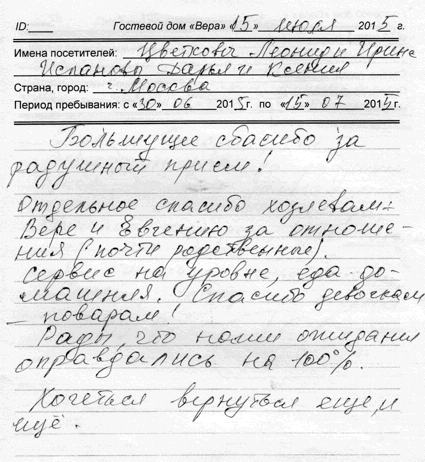 ID: Гостевой дом «Вера» «15» июля 2015 г.
Имена посетителей: Цветковы Леонид и Ирина
Испановы Дарья и Ксения
Страна, город: г. Москва
Период пребывания: с «30» 06 2015г. по «15» 07 2015г.
Большущее спасибо за
радушный прием!
Отдельное спасибо хозяевам:
Вере и Евгению за отноше-
ния (почти родственные).
Сервис на уровне, еда до-
машняя. Спасибо девочкам
– поварам!
Рады, что наши ожидания
оправдались на 100%.
Хочеться вернуться еще и
ещё.